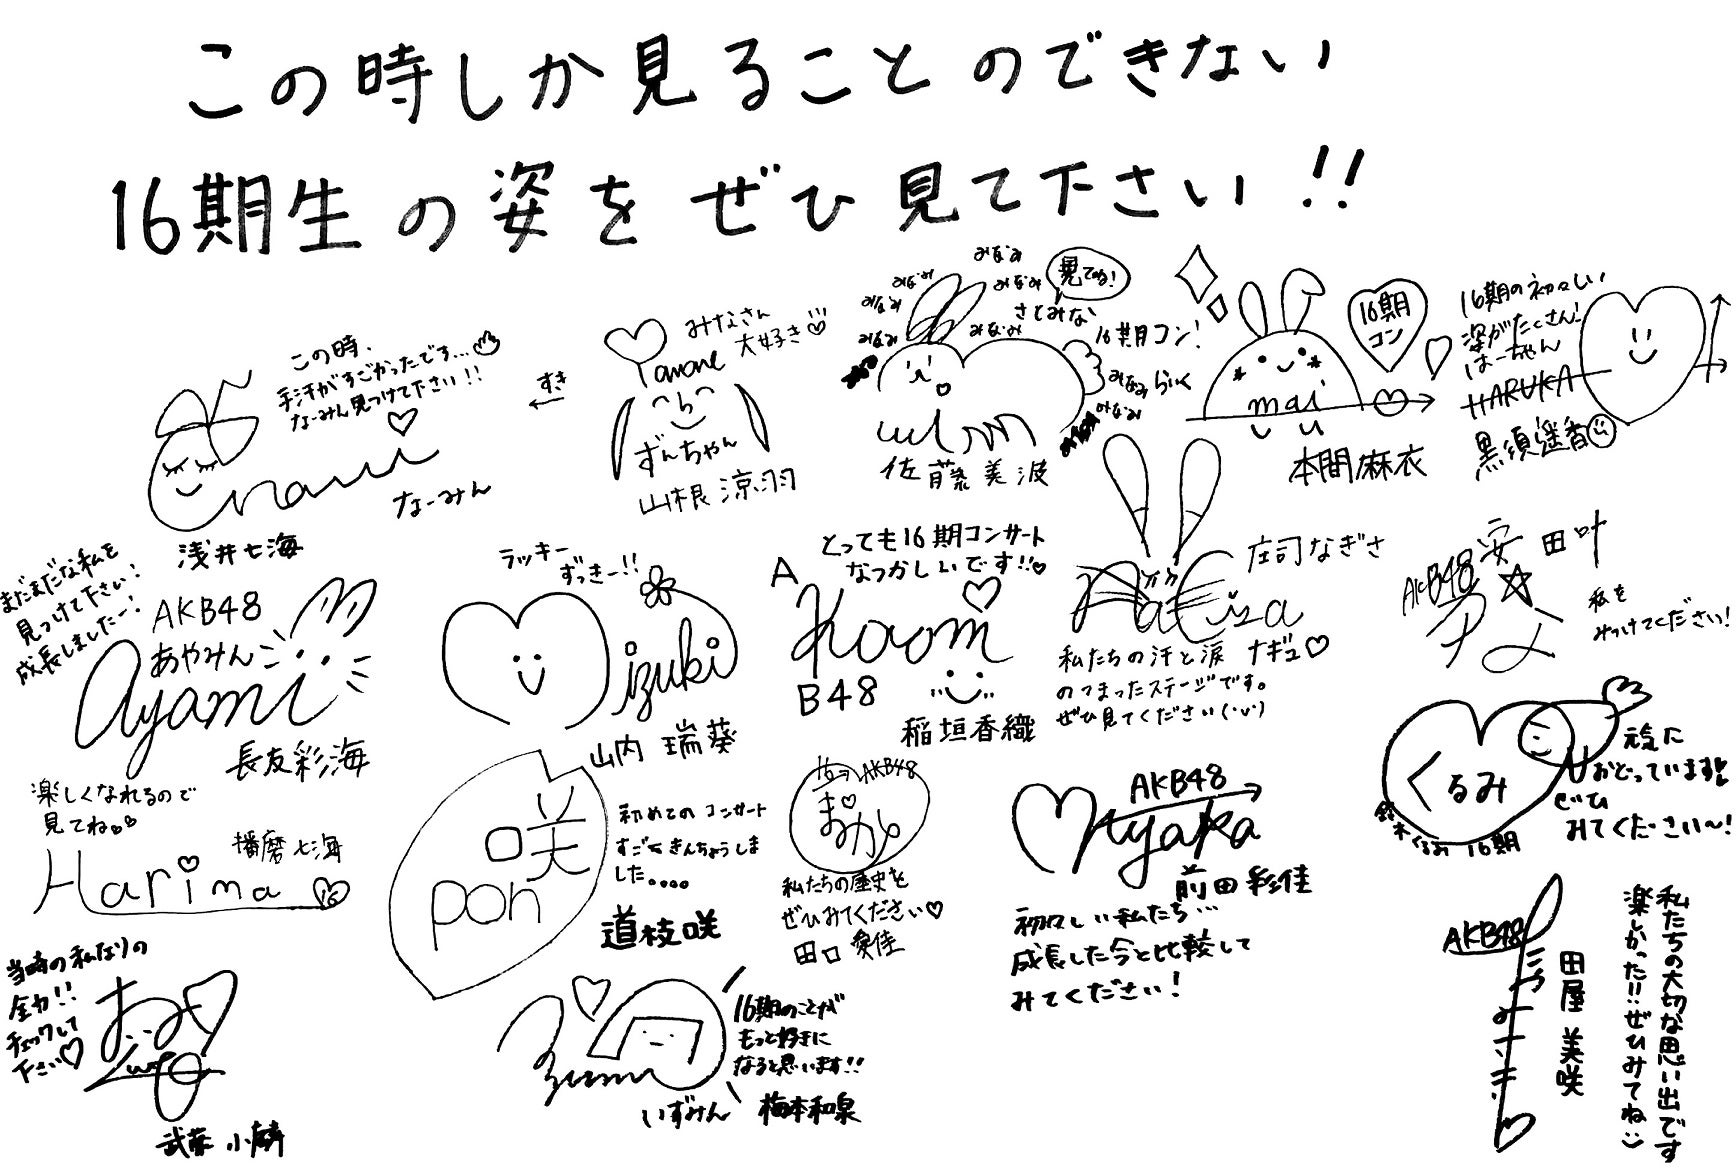 この時しか見ることのできない
16期生の姿をぜひ見て下さい!!
この時、
手汗がすごかったです…
なーみん見つけて下さい!!
なーみん
浅井七海
すき
みなさん
大好き
ずんちゃん
山根涼羽
みなみ
みなみ
みなみ
みなみ
みなみ
みなみ
見てね!
さとみな
16期コン!
みなみらいく
みなみ
佐藤美波
16期
コン
mai
本間麻衣
16期の初々しい
姿がたくさん!
はーちゃん
HARUKA
黒須遥香
まだまだな私を
見つけて下さい!
成長しましたー!
AKB48
あやみん
Ayami
長友彩海
ラッキー
ずっきー!!
izuki
山内瑞葵
とっても16期コンサート
なつかしいです!!
A
Kaom
B48
稲垣香織
庄司なぎさ
私たちの汗と涙 ナギュ
のつまったステージです。
ぜひ見てください(・v・)
AKB48
安田叶
私を
みつけてください!
楽しくなれるので
見てね
播磨七海
Harima
16
咲
pon
初めてのコンサート
すごくきんちょうしま
した。。。。
道枝咲
AKB48
まなか
私たちの歴史を
ぜひみてください
田口愛佳
AKB48
Ayaka
前田彩佳
初々しい私たち…
成長した今と比較して
みてください!
くるみ
鈴木くるみ 16期
元気に
おどっています!
ぜひ
みてください〜!
当時の私なりの
全力!!
チェックして
下さい
武藤小麟
16期のことが
もっと好きに
なると思います!!
いずみん
梅本和泉
AKB48
みさき
田屋美咲
私たちの大切な思い出です
楽しかった!!ぜひみてね:)